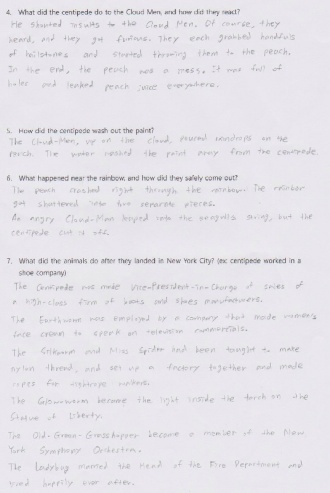 4. What did the centipede do to the Cloud Men, and how did they react?
He shouted insults to the Cloud Men. Of course, they
heard, and they got furious. They each grabbed handfuls
of hailstones and started throwing them to the peach.
In the end, the peach was a mess. It was full of
holes and leaked peach juice everywhere.
5. How did the centipede wash out the paint?
The Cloud-Men, up on the cloud, poured on the
peach. The water washed the paint away from the centipede.
6. What happened near the rainbow, and how did they safely come out?
The peach crashed right through the rainbow. The rainbow
got shattered into two separate pieces.
An angry Cloud-Man hopped into the seagulls string, but the
centipede cut it off.
7. What did the animals do after they landed in New York City? (ex: centipede worked in a
shoe company)
The Centipede was made Vice-President-in-Charge of sales of
a high-class firm of boots and shoes manufacturers.
The Earthworm was employed by a company that made women's
face cream to speak on television commercials.
The Silkworm and Miss Spider had been taught to make
nylon thread, and set up a factory together and made
ropes for tightrope walkers.
The Glow-worm became the light inside the torch on the
Statue of Liberty.
The Old-Green-Grasshopper became a member of the New
York Symphony Orchestra.
The Ladybug married the Head of the Fire Department and
lived happily ever after.